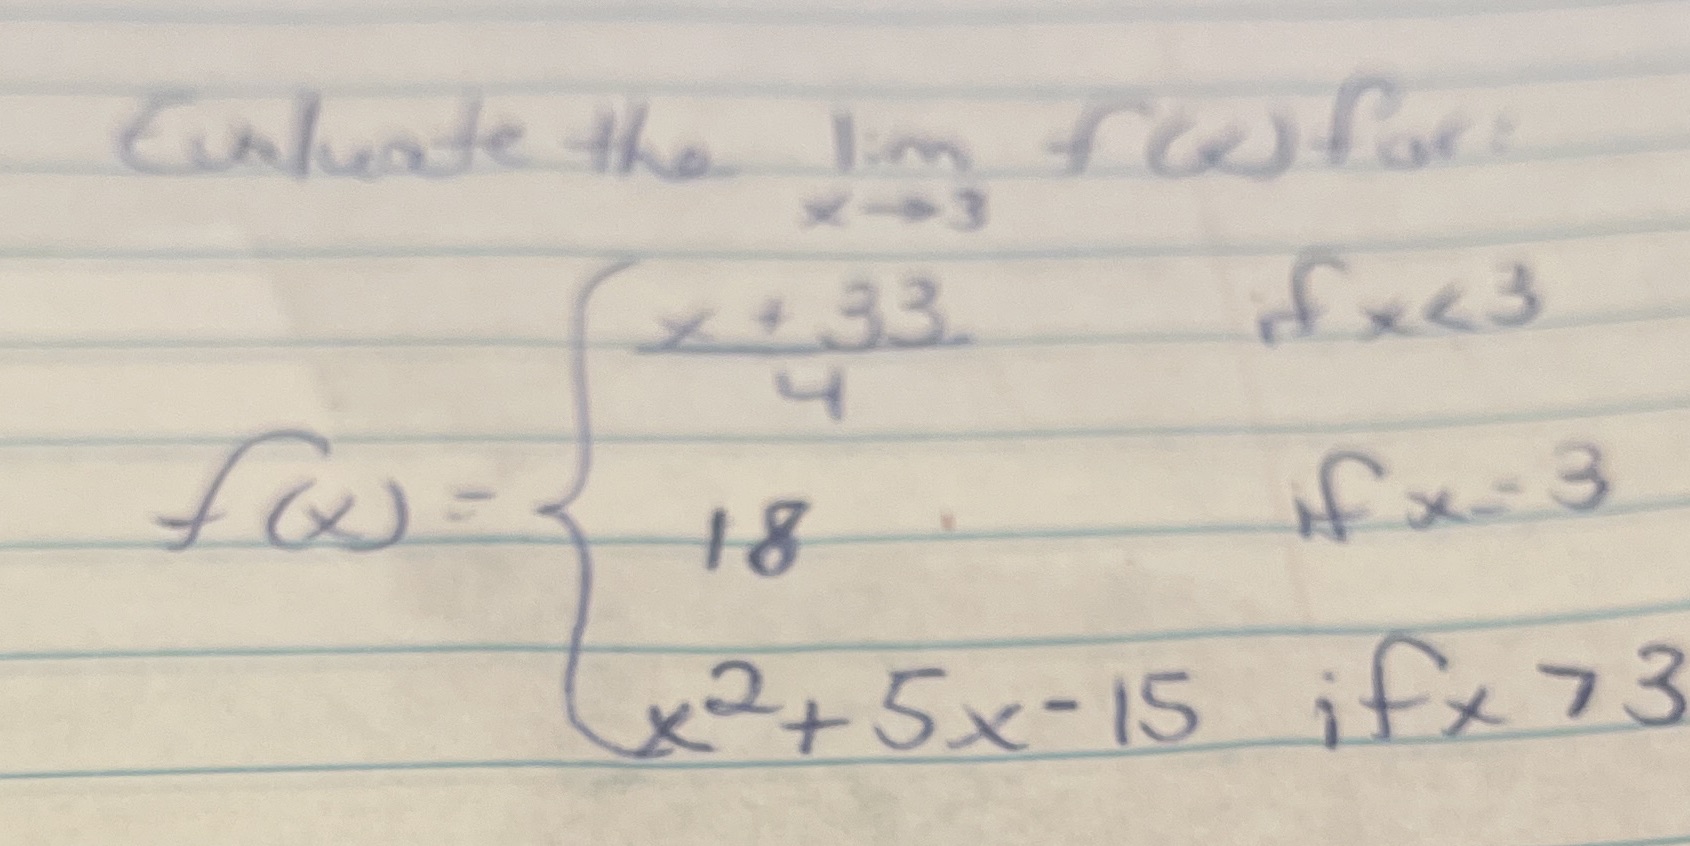 Evaluate the lim f(x) for:
x→3
x + 33 if x < 3
4
f(x) = { 18 if x = 3
x² + 5x - 15 if x > 3